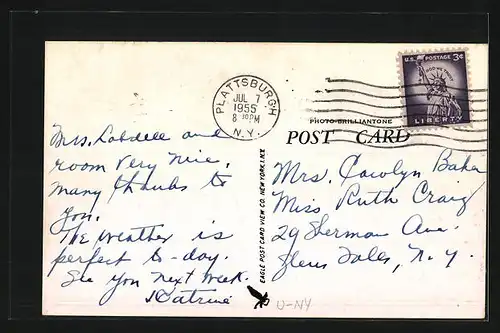 PLATTSBURGH
JUL 7
1955
8 30 PM
N.Y.
U.S. POSTAGE 3¢
IN GOD WE TRUST
LIBERTY
PHOTO-BRILLIANTONE
POST CARD
Mrs. Lobdell and
room very nice,
many thanks to
you.
The weather is
perfect to-day.
See you next week.
Katrine
EAGLE POST CARD VIEW CO. NEW YORK 1, N.Y.
Mrs. Carolyn Baker
Miss Ruth Craig
29 Sherman Ave.
Glens Falls, N.Y.
U-NY